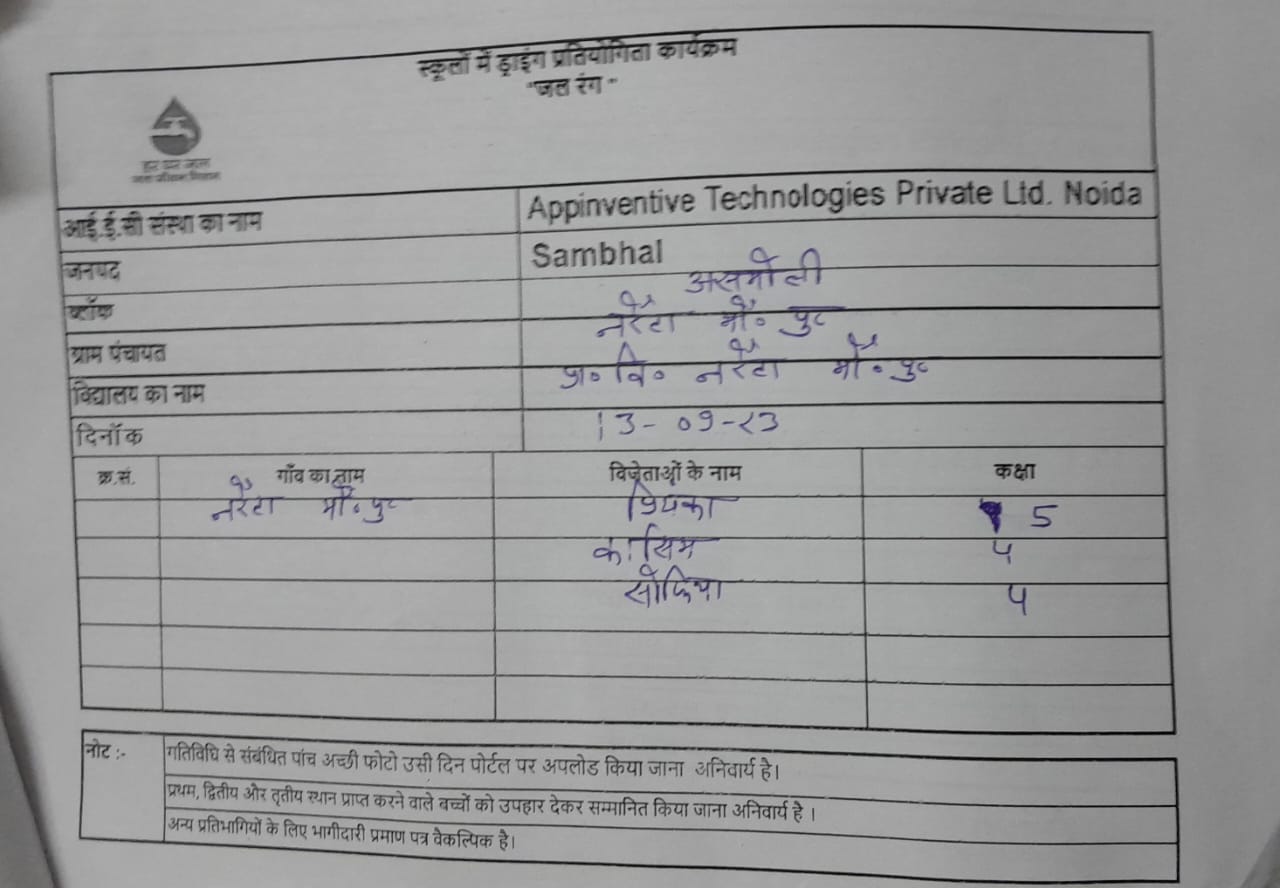 स्कूलों में ड्राइंग प्रतियोगिता कार्यक्रम
"जल रंग"
हर घर जल
जल जीवन मिशन
आई.ई.सी संस्था का नाम Appinventive Technologies Private Ltd. Noida
जनपद Sambhal
ब्लॉक असमोली
ग्राम पंचायत नरैटा मौ० पुर
विद्यालय का नाम प्रा० वि० नरैटा मौ० पुर
दिनॉक 13-09-23
क्र.सं. गाँव का नाम विजेताओं के नाम कक्षा
नरैटा मौ० पुर प्रियका 5
कासिम 4
सोफिया 4
नोट :- गतिविधि से संबंधित पांच अच्छी फोटो उसी दिन पोर्टल पर अपलोड किया जाना अनिवार्य है।
प्रथम, द्वितीय और तृतीय स्थान प्राप्त करने वाले बच्चों को उपहार देकर सम्मानित किया जाना अनिवार्य है ।
अन्य प्रतिभागियों के लिए भागीदारी प्रमाण पत्र वैकल्पिक है।